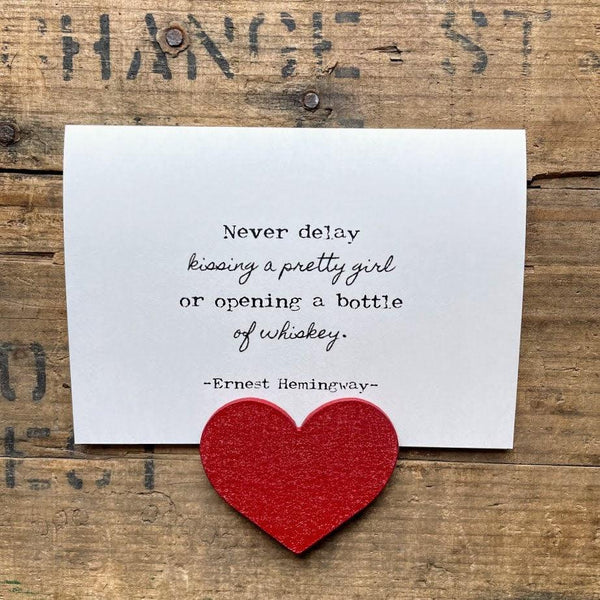 CHANGE ST
Never delay
kissing a pretty girl
or opening a bottle
of whiskey.
-Ernest Hemingway-